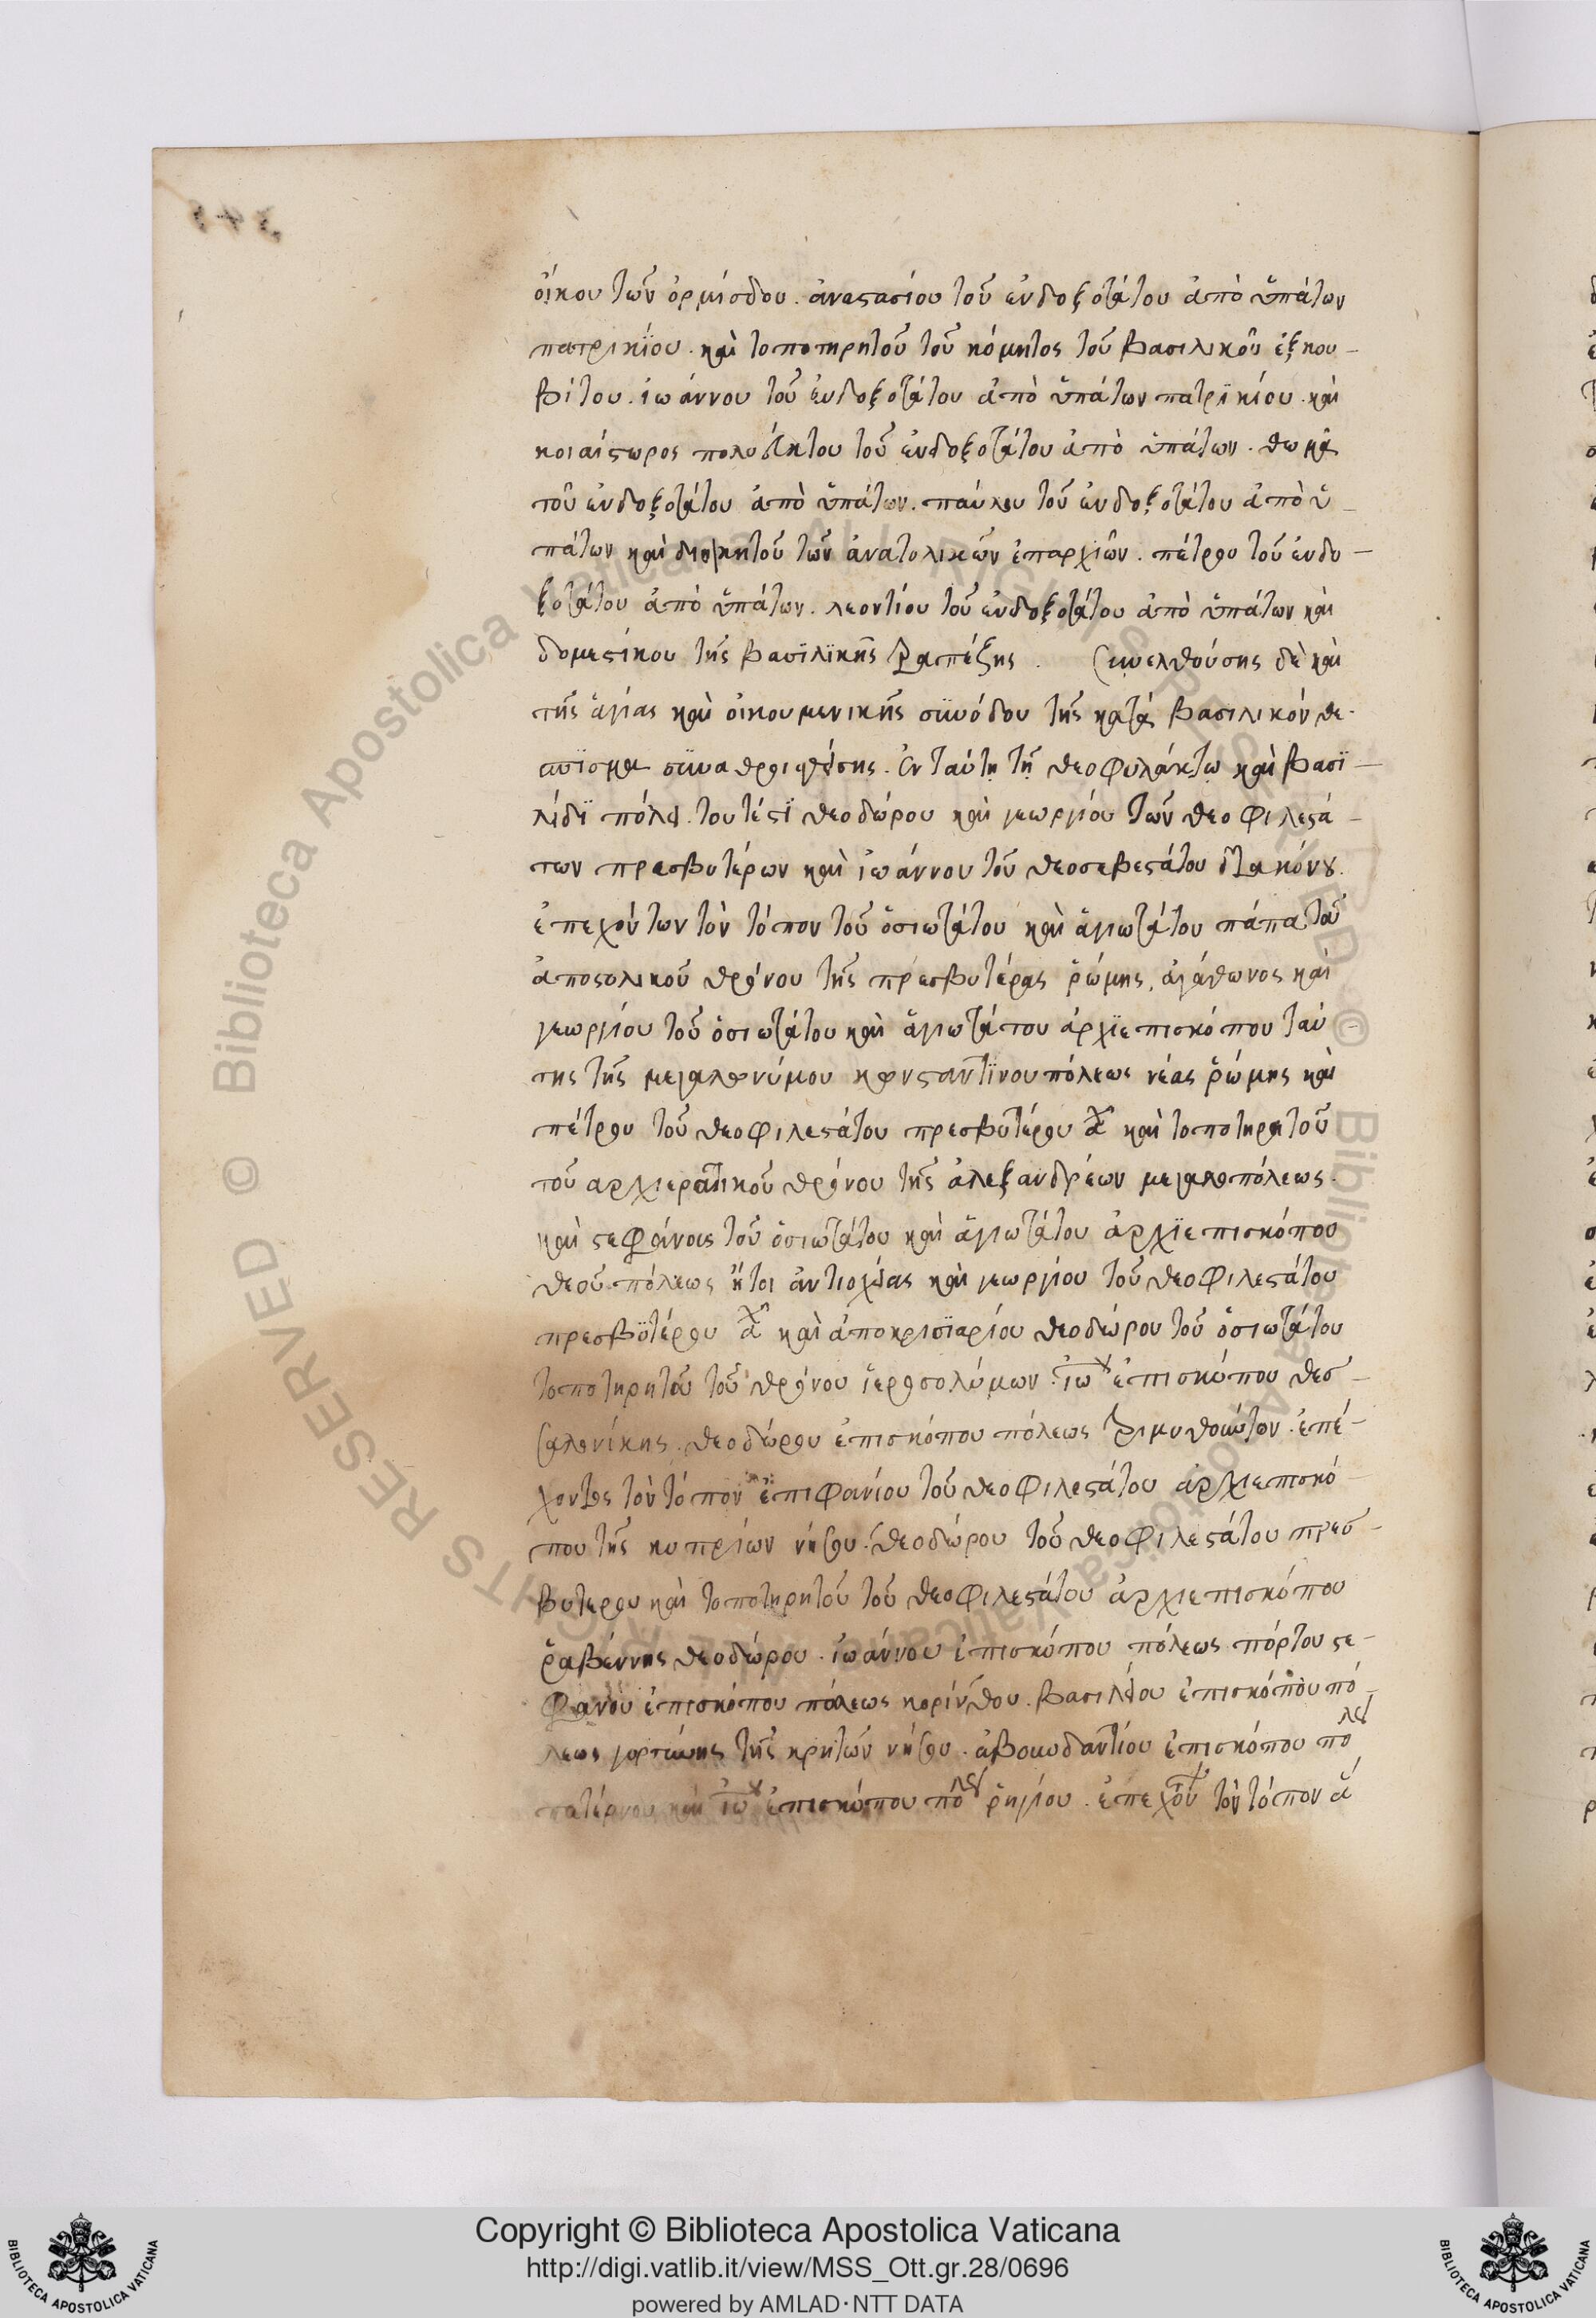 οἴκου τῶν ὁρμίσδου. ἀναστασίου τοῦ ἐνδοξοτάτου ἀπὸ ὑπάτων
πατρικίου. καὶ τοποτηρητοῦ τοῦ κόμητος τοῦ βασιλικοῦ ἐξκου-
βίτου. ἰωάννου τοῦ ἐνδοξοτάτου ἀπὸ ὑπάτων πατρϊκίου. καὶ
κοιαίστωρος πολυεύκτου τοῦ ἐνδοξοτάτου ἀπὸ ὑπάτων. θωμᾶ
τοῦ ἐνδοξοτάτου ἀπὸ ὑπάτων. παύλου τοῦ ἐνδοξοτάτου ἀπὸ ὑ-
πάτων καὶ διοικητοῦ τῶν ἀνατολικῶν ἐπαρχιῶν. πέτρου τοῦ ἐνδο-
ξοτάτου ἀπὸ ὑπάτων. λεοντίου τοῦ ἐνδοξοτάτου ἀπὸ ὑπάτων καὶ
δομεστίκου τῆς βασϊλϊκῆς τραπέζης. Συνελθούσης δὲ καὶ
τῆς ἁγίας καὶ οἰκουμενικῆς σϋνόδου τῆς κατὰ βασιλικὸν θέ-
σπϊσμα σϋναθροισθείσης. ἐν ταύτῃ τῇ θεοφυλάκτω καὶ βασϊ-
λίδϊ πόλει. τουτέστϊ θεοδώρου καὶ γεωργίου τῶν θεοφιλεστά-
των πρεσβυτέρων καὶ ἰωάννου τοῦ θεοσεβεστάτου διακόνου.
ἐπεχόντων τὸν τόπον τοῦ ὁσιωτάτου καὶ ἁγιωτάτου πάπα τοῦ
ἀποστολικοῦ θρόνου τῆς πρεσβυτέρας ῥώμης, ἀγάθωνος καὶ
γεωργίου τοῦ ὁσιωτάτου καὶ ἁγιωτάτου ἀρχϊεπισκόπου ταύ-
της τῆς μεγαλωνύμου κωνσταντϊνουπόλεως νέας ῥώμης καὶ
πέτρου τοῦ θεοφιλεστάτου πρεσβυτέρου α^χ καὶ τοποτηρητοῦ
τοῦ αρχιερατικοῦ θρόνου τῆς ἀλεξανδρέων μεγαλοπόλεως.
καὶ στεφάνου τοῦ ὁσιωτάτου καὶ ἁγιωτάτου ἀρχϊεπισκόπου
θεουπόλεως ἤτοι ἀντιοχείας καὶ γεωργίου τοῦ θεοφιλεστάτου
πρεσβϋτέρου α^χ καὶ ἀποκρισϊαρίου θεοδώρου τοῦ ὁσιωτάτου
τοποτηρητοῦ τοῦ θρόνου ἱεροσολύμων. ιω^υ ἐπισκόπου θεσ-
σαλονίκης. θεοδώρου ἐπισκόπου πόλεως τριμυθούντων. ἐπέ-
χοντος τὸν τόπον ἐπιφανίου τοῦ θεοφιλεστάτου αρχιεπισκό-
που τῆς κυπρίων νήσου. θεοδώρου τοῦ θεοφιλεστάτου πρεσ-
βυτερου καὶ τοποτηρητοῦ τοῦ θεοφιλεστάτου ἀρχιεπισκόπου
ῥαβέννης θεοδώρου. ἰωάννου ἐπισκόπου πόλεως πόρτου στε-
φάνου ἐπισκόπου πόλεως κορίνθου. βασιλείου ἐπισκόπου πό-
λεως γορτύνης τῆς κρητῶν νήσου. ἀβουνδαντίου ἐπισκόπου πό^λε
πατέρνου καὶ ιω^υ ἐπισκόπου πό^λε ῥηγίου. ἐπεχόν^τ τὸν τόπον
Copyright © Biblioteca Apostolica Vaticana
http://digi.vatlib.it/view/MSS_Ott.gr.28/0696
powered by AMLAD·NTT DATA
BIBLIOTECA APOSTOLICA VATICANA
BIBLIOTECA APOSTOLICA VATICANA